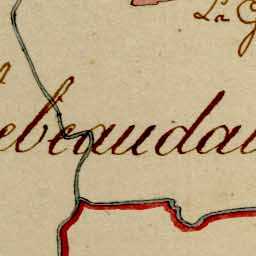 La G
ebeaudai